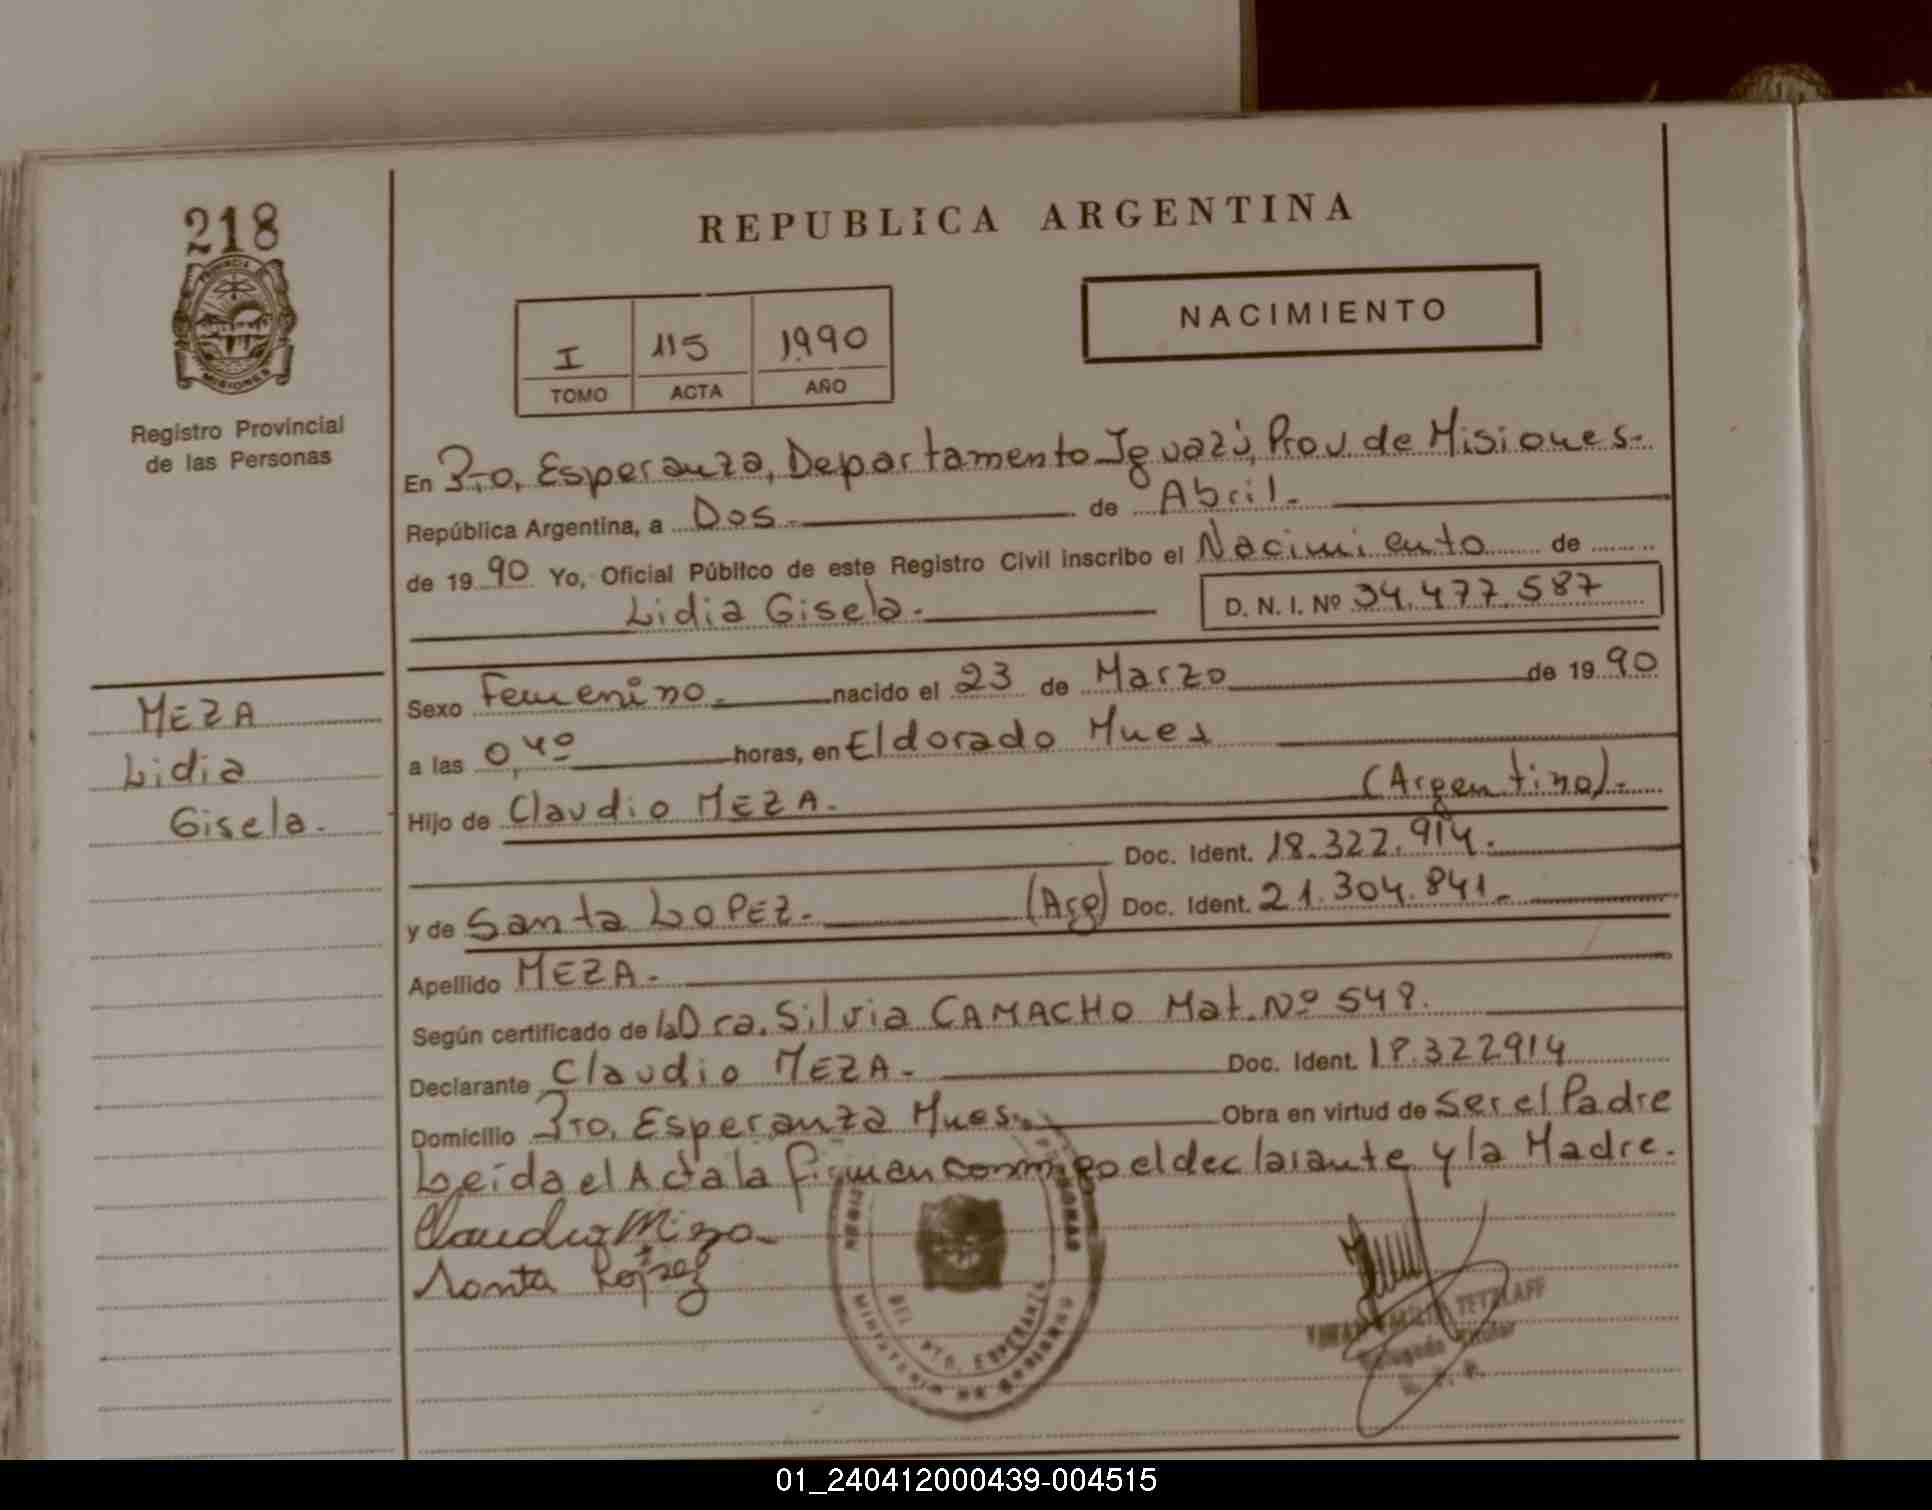 218
PROVINCIA
MISIONES
Registro Provincial
de las Personas
REPUBLICA ARGENTINA
I 115 1990
TOMO ACTA AÑO
NACIMIENTO
En Pto. Esperanza, Departamento Iguazú, Prov. de Misiones.
República Argentina, a Dos. de Abril.
de 19 90 Yo, Oficial Público de este Registro Civil inscribo el Nacimiento de
Lidia Gisela. D. N. I. Nº 34.477.587
MEZA
Lidia
Gisela.
Sexo Femenino. nacido el 23 de Marzo de 19 90
a las 0,40 horas, en Eldorado Mnes
Hijo de Claudio MEZA. (Argentino).
Doc. Ident. 18.322.914.
y de Santa LOPEZ. (Arg) Doc. Ident. 21.304.841.
Apellido MEZA.
Según certificado de la Dra. Silvia CAMACHO Mat. Nº 548.
Declarante Claudio MEZA. Doc. Ident. 18.322914
Domicilio Pto. Esperanza Mnes. Obra en virtud de Ser el Padre
Leída el Acta la firman conmigo el declarante y la Madre.
Claudio Meza
Santa López
DEL PTO. ESPERANZA
MINISTERIO DE GOBIERNO
TETZLAFF
Delegado Titular
01_240412000439-004515